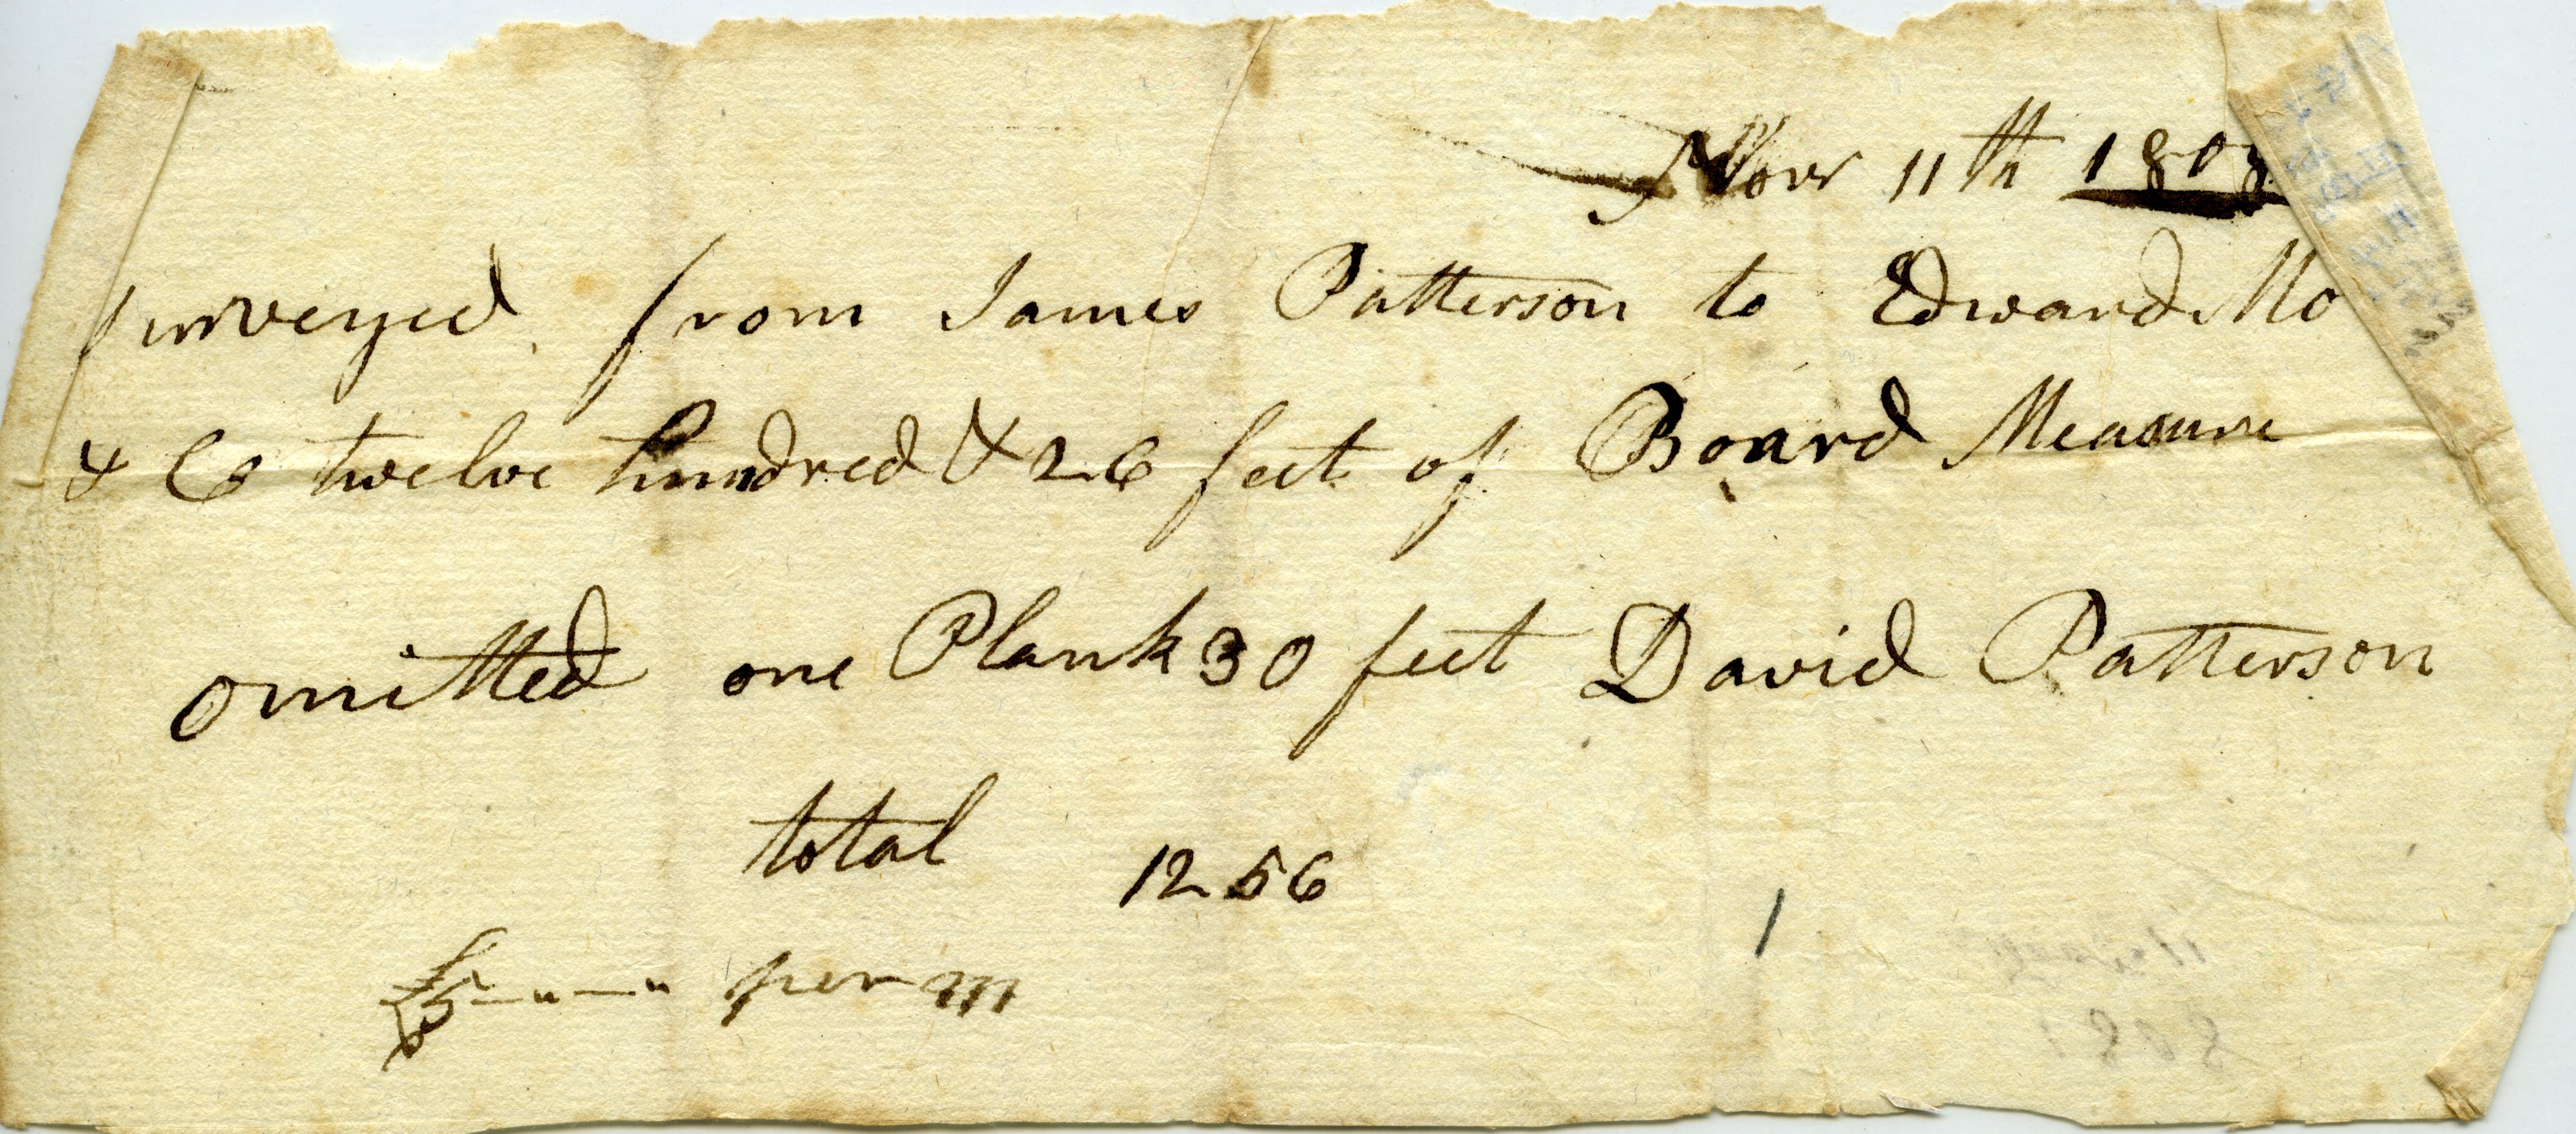 Nov 11th 1808
surveyed from James Patterson to Edward Mo
& Co twelve hundred & 26 feet of Board Measure
omitted one Plank 30 feet David Patterson
total 1256
£5-"-" per m